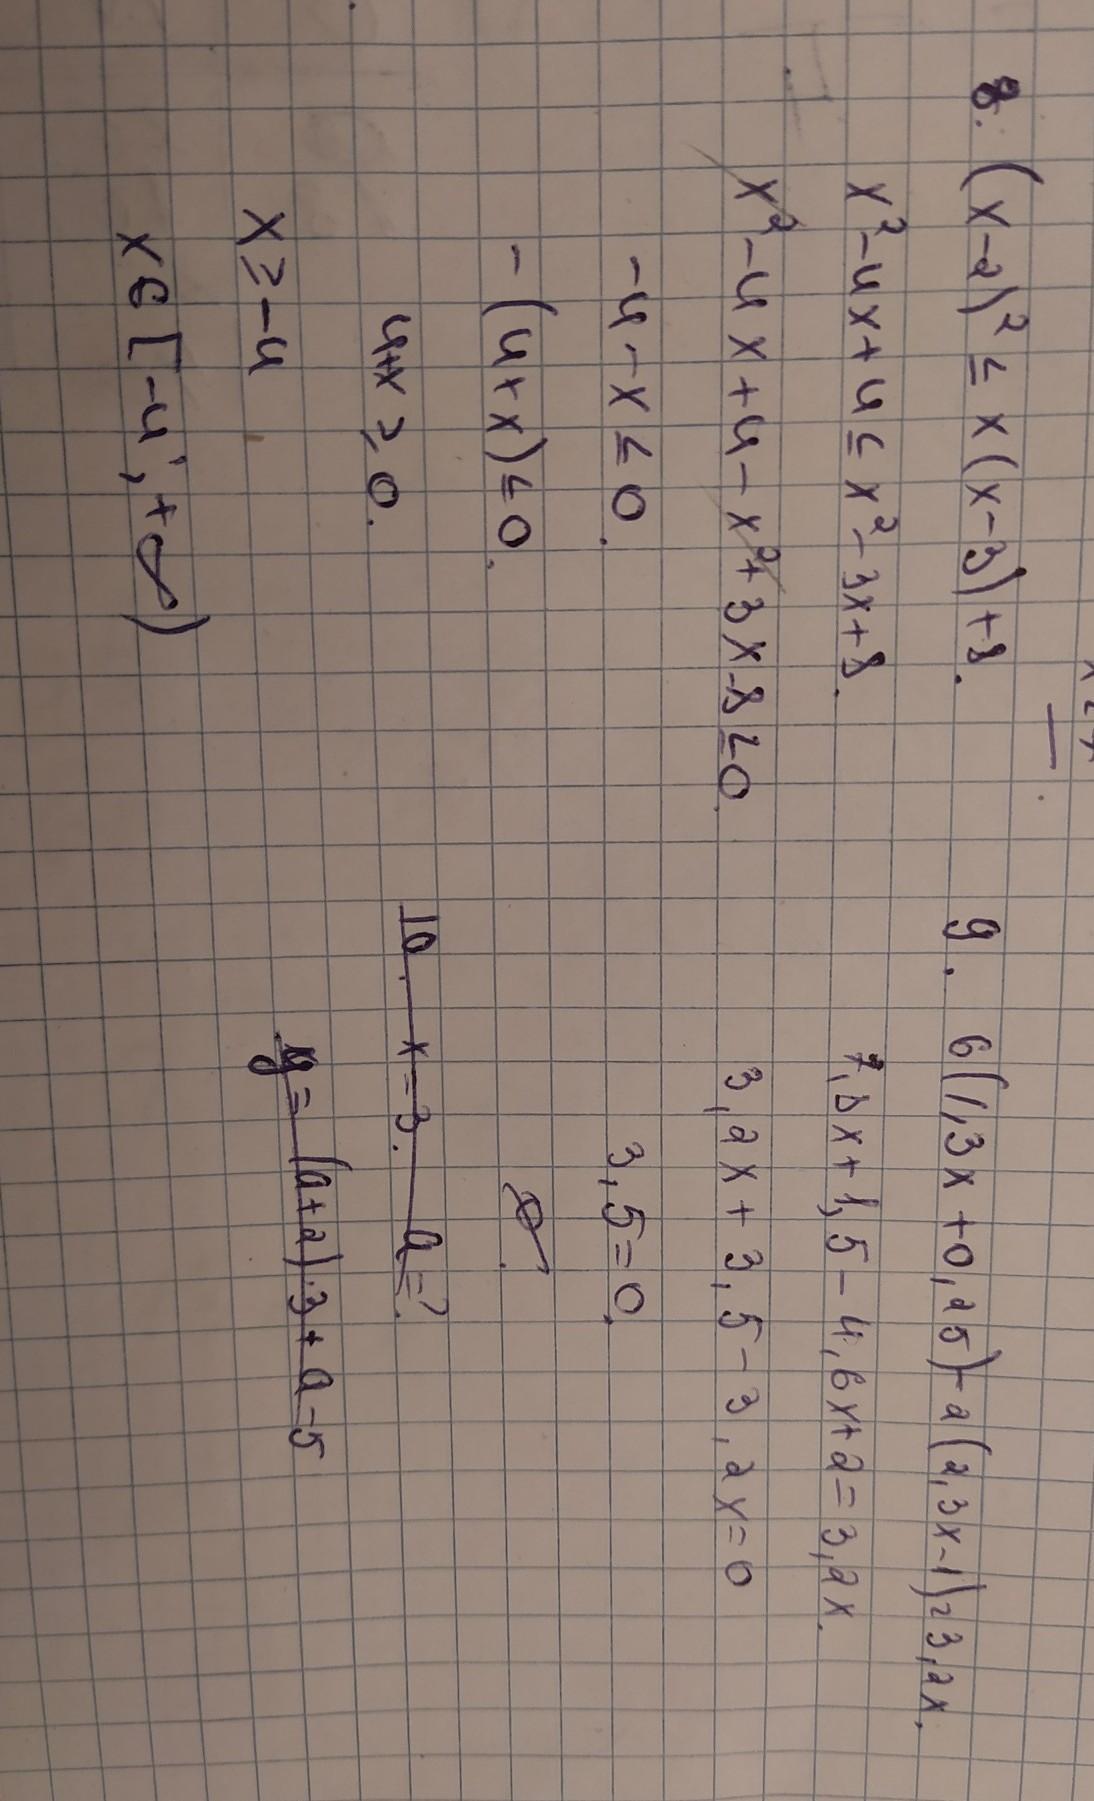 8. (x-2)² ≤ x(x-3)+8.
x²-4x+4 ≤ x²-3x+8.
x²-4x+4-x²+3x-8≤0.
-4-x≤0.
-(4+x)≤0.
4+x≥0.
x≥-4
x∈[-4;+∞)
9. 6(1,3x+0,25)-2(2,3x-1)=3,2x.
7,8x+1,5-4,6x+2=3,2x.
3,2x+3,5-3,2x=0
3,5=0.
∅.
10. x=3. a=?
y=(a+2)·3+a-5